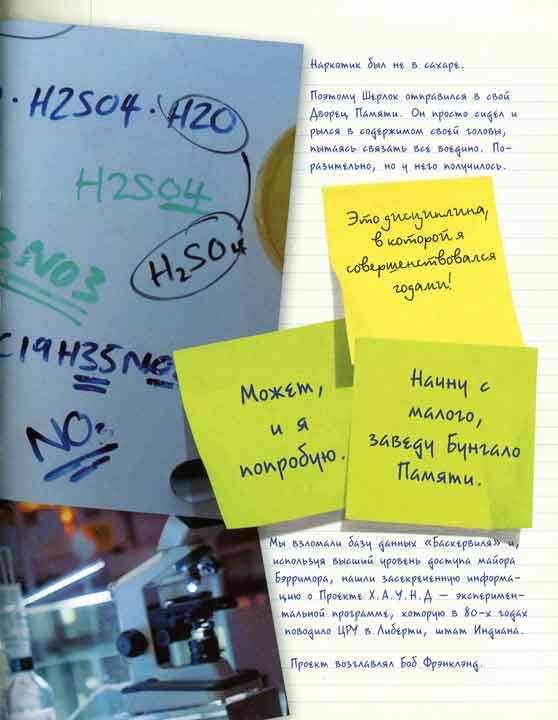 Наркотик был не в сахаре.
Поэтому Шерлок отправился в свой
Дворец Памяти. Он просто сидел и
рылся в содержимом своей головы,
пытаясь связать все воедино. По-
разительно, но у него получилось.
Это дисциплина,
в которой я
совершенствовался
годами!
Может,
и я
попробую.
Начну с
малого,
заведу Бунгало
Памяти.
· H2SO4 · H2O
H2SO4
H₂SO4
NO3
C19H35NO
NO
Мы взломали базу данных «Баскервиля» и,
используя высший уровень доступа майора
Бэрримора, нашли засекреченную информа-
цию о Проекте Х.А.У.Н.Д — эксперимен-
тальной программе, которую в 80-х годах
поводило ЦРУ в Либерти, штат Индиана.
Проект возглавлял Боб Фрэнклэнд.